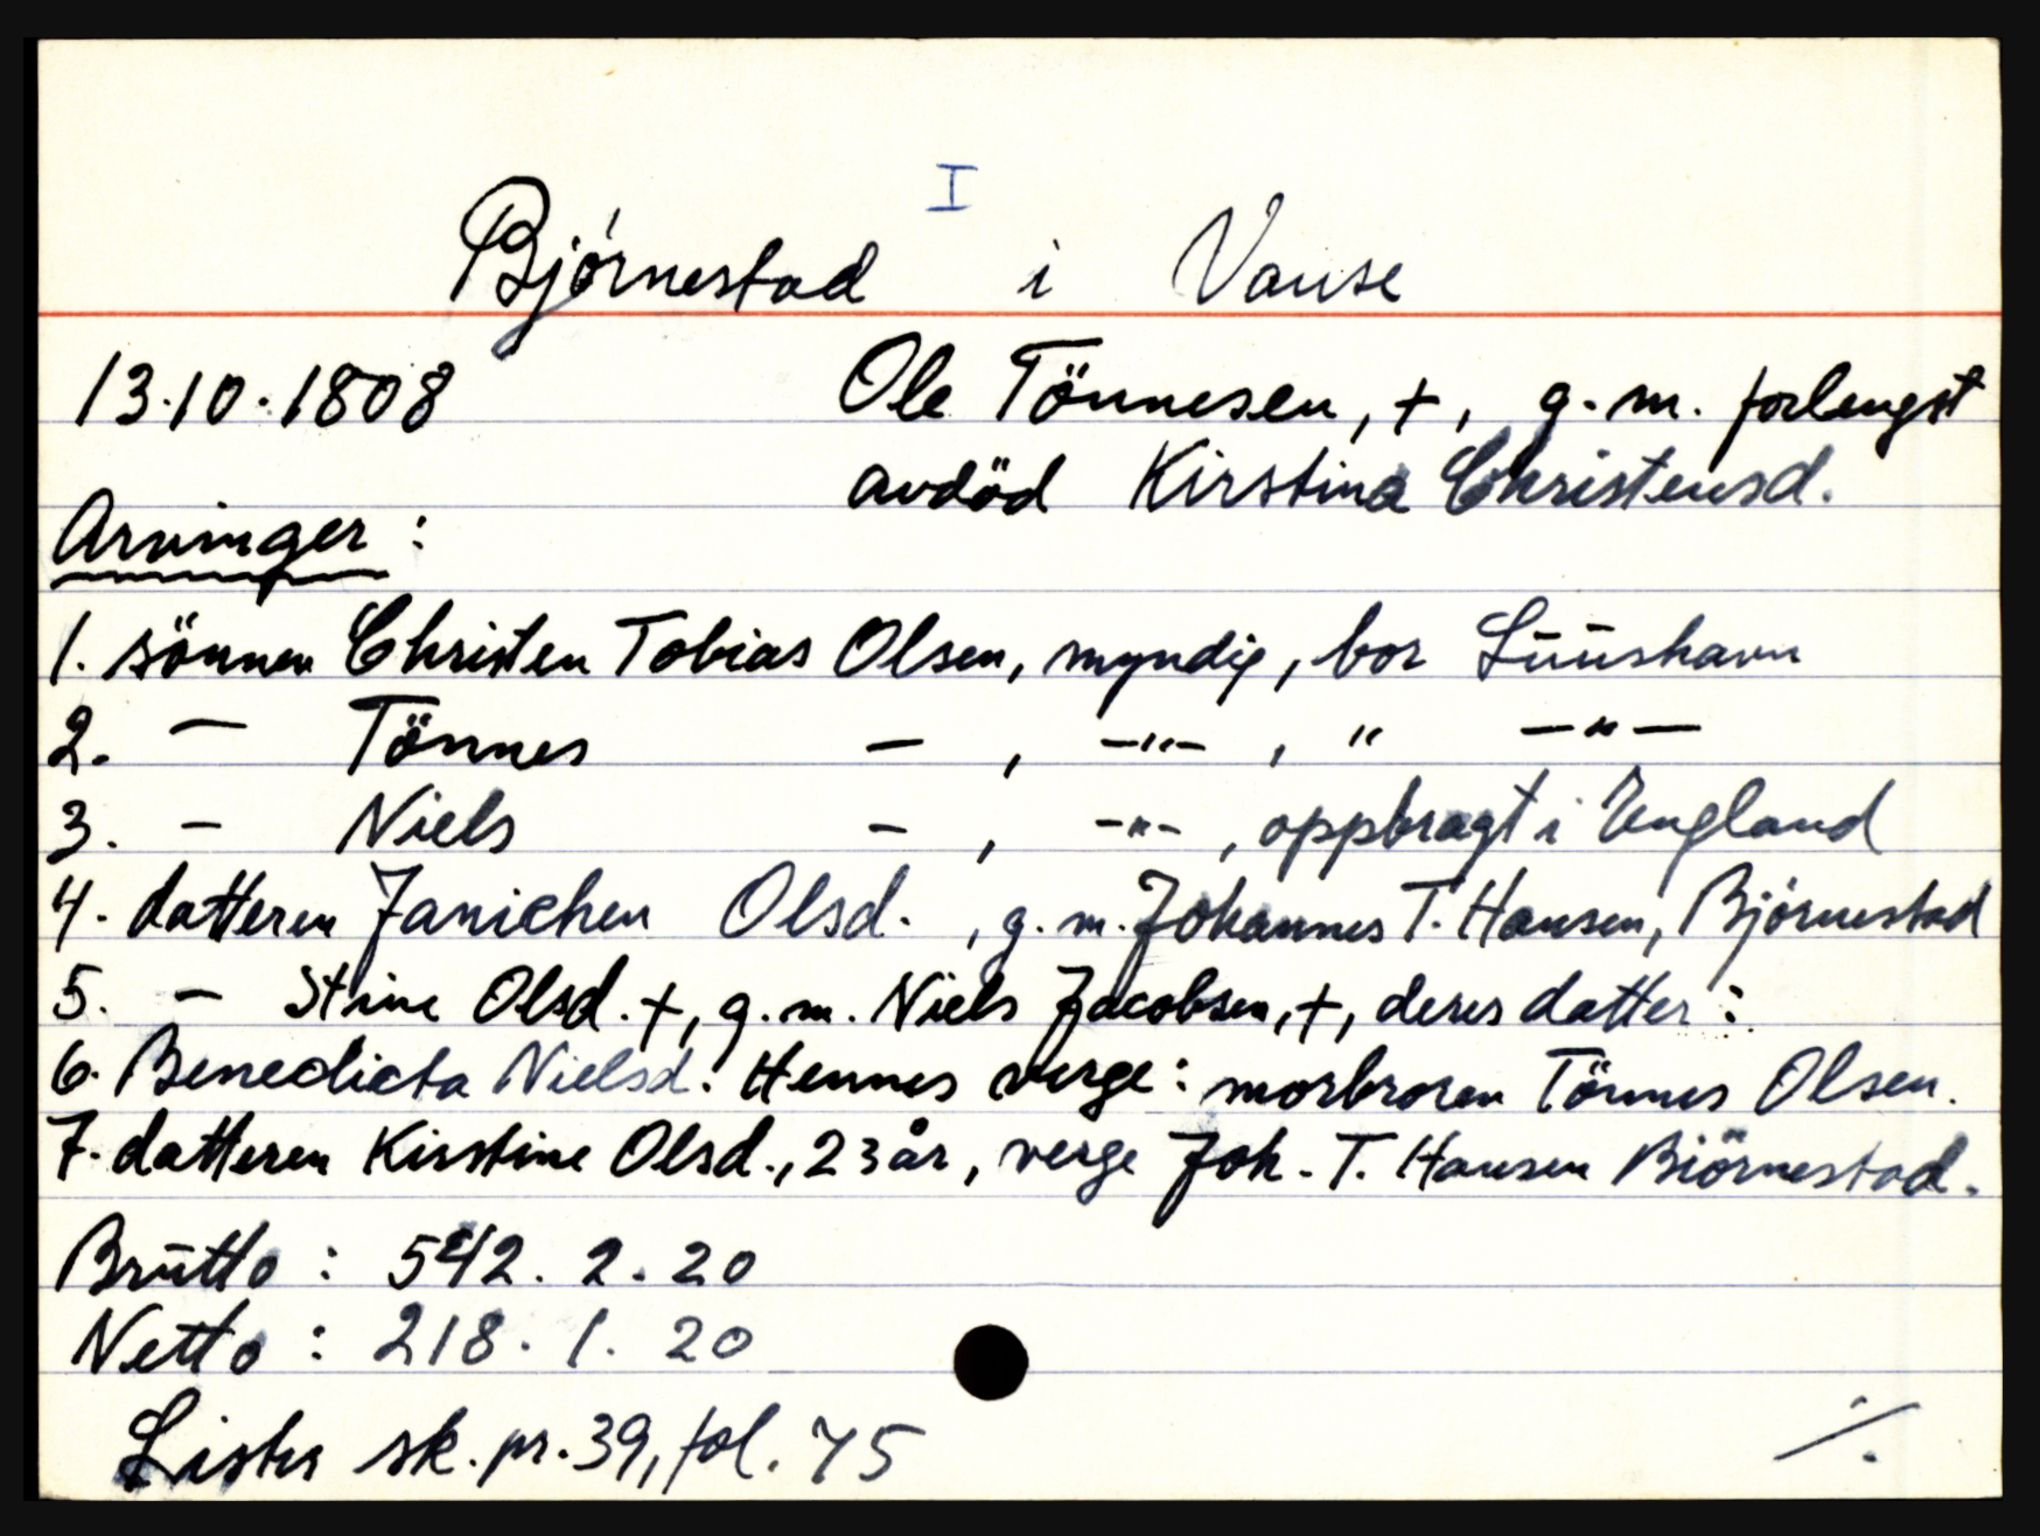 I
Björnestad i Vanse
13.10.1808 Ole Tönnesen, +, g.m. forlengst
avdöd Kirstina Christensd.
Arvinger :
1. sönnen Christen Tobias Olsen, myndig, bor Lūūshavn
2. — Tönnes — , —"— , " —"—
3. — Niels — , —"— , oppbragt i England
4. datteren Janichen Olsd. , g.m. Johannes T. Hansen, Björnestad
5. — Stine Olsd. +, g.m. Niels Jacobsen, +, deres datter :
6. Benedicta Nielsd. Hennes verge : morbroren Tönnes Olsen.
7. datteren Kirstine Olsd., 23 år, verge Joh. T. Hansen Biörnestad.
Brūtto : 542. 2. 20
Netto : 218. 1. 20
Lister sk.pr. 39, fol. 75 ./.